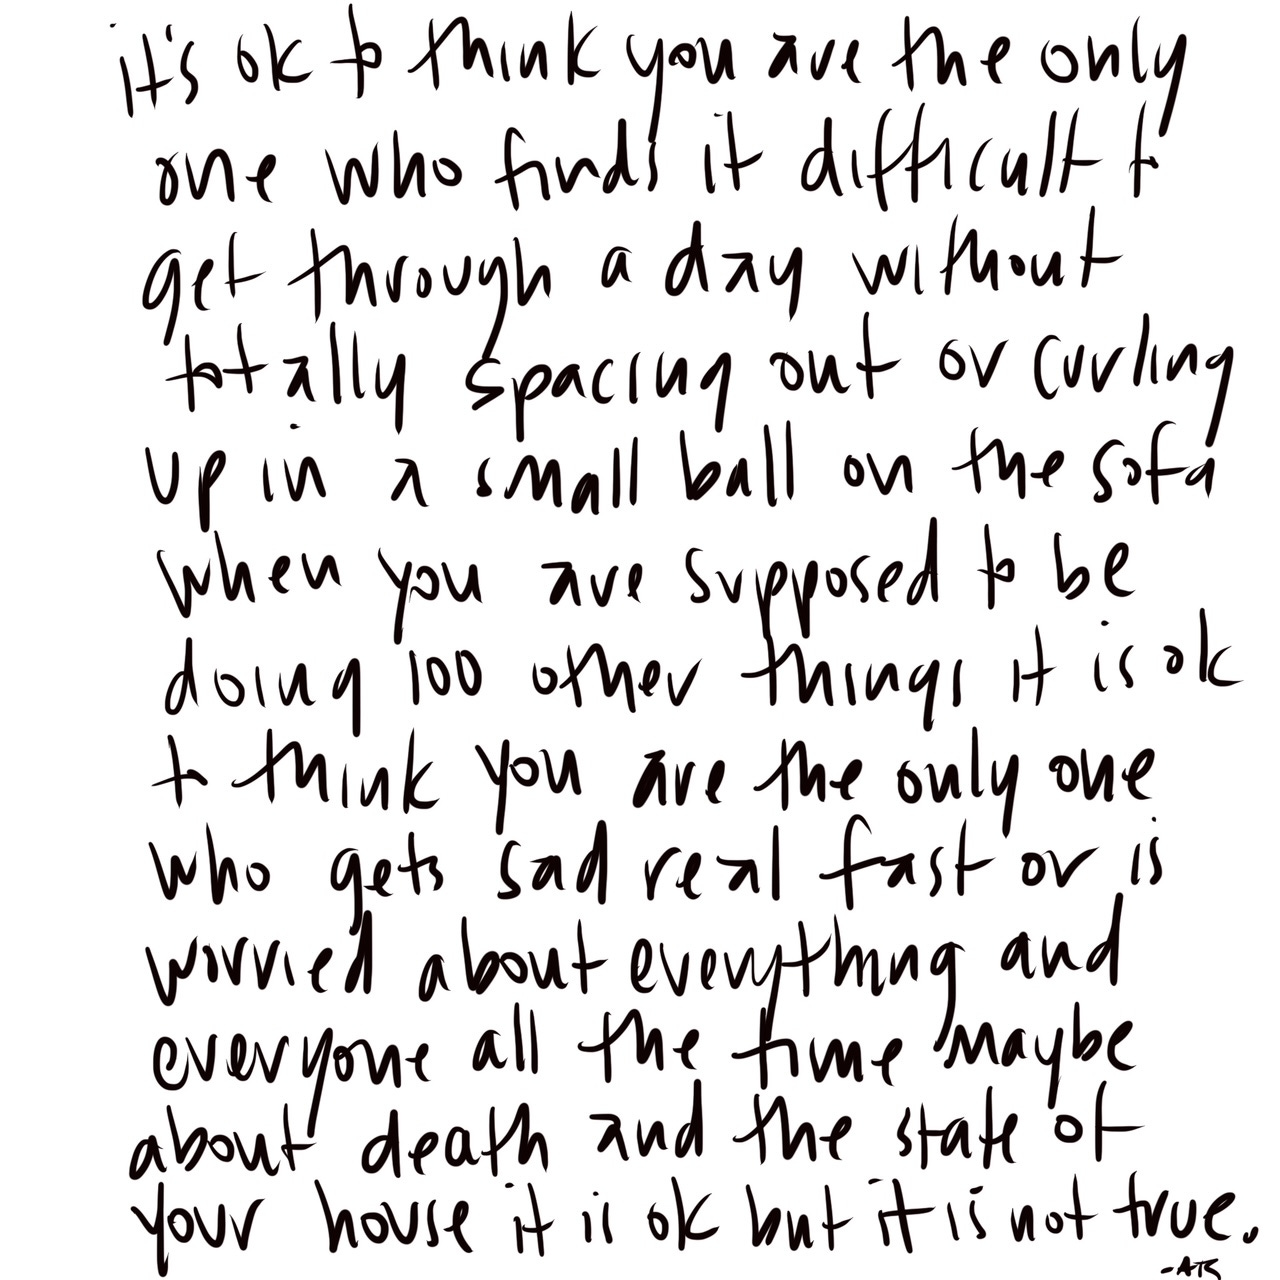 it's ok to think you are the only
one who finds it difficult to
get through a day without
totally spacing out or curling
up in a small ball on the sofa
when you are supposed to be
doing 100 other things it is ok
to think you are the only one
who gets sad real fast or is
worried about everything and
everyone all the time maybe
about death and the state of
your house it is ok but it is not true.